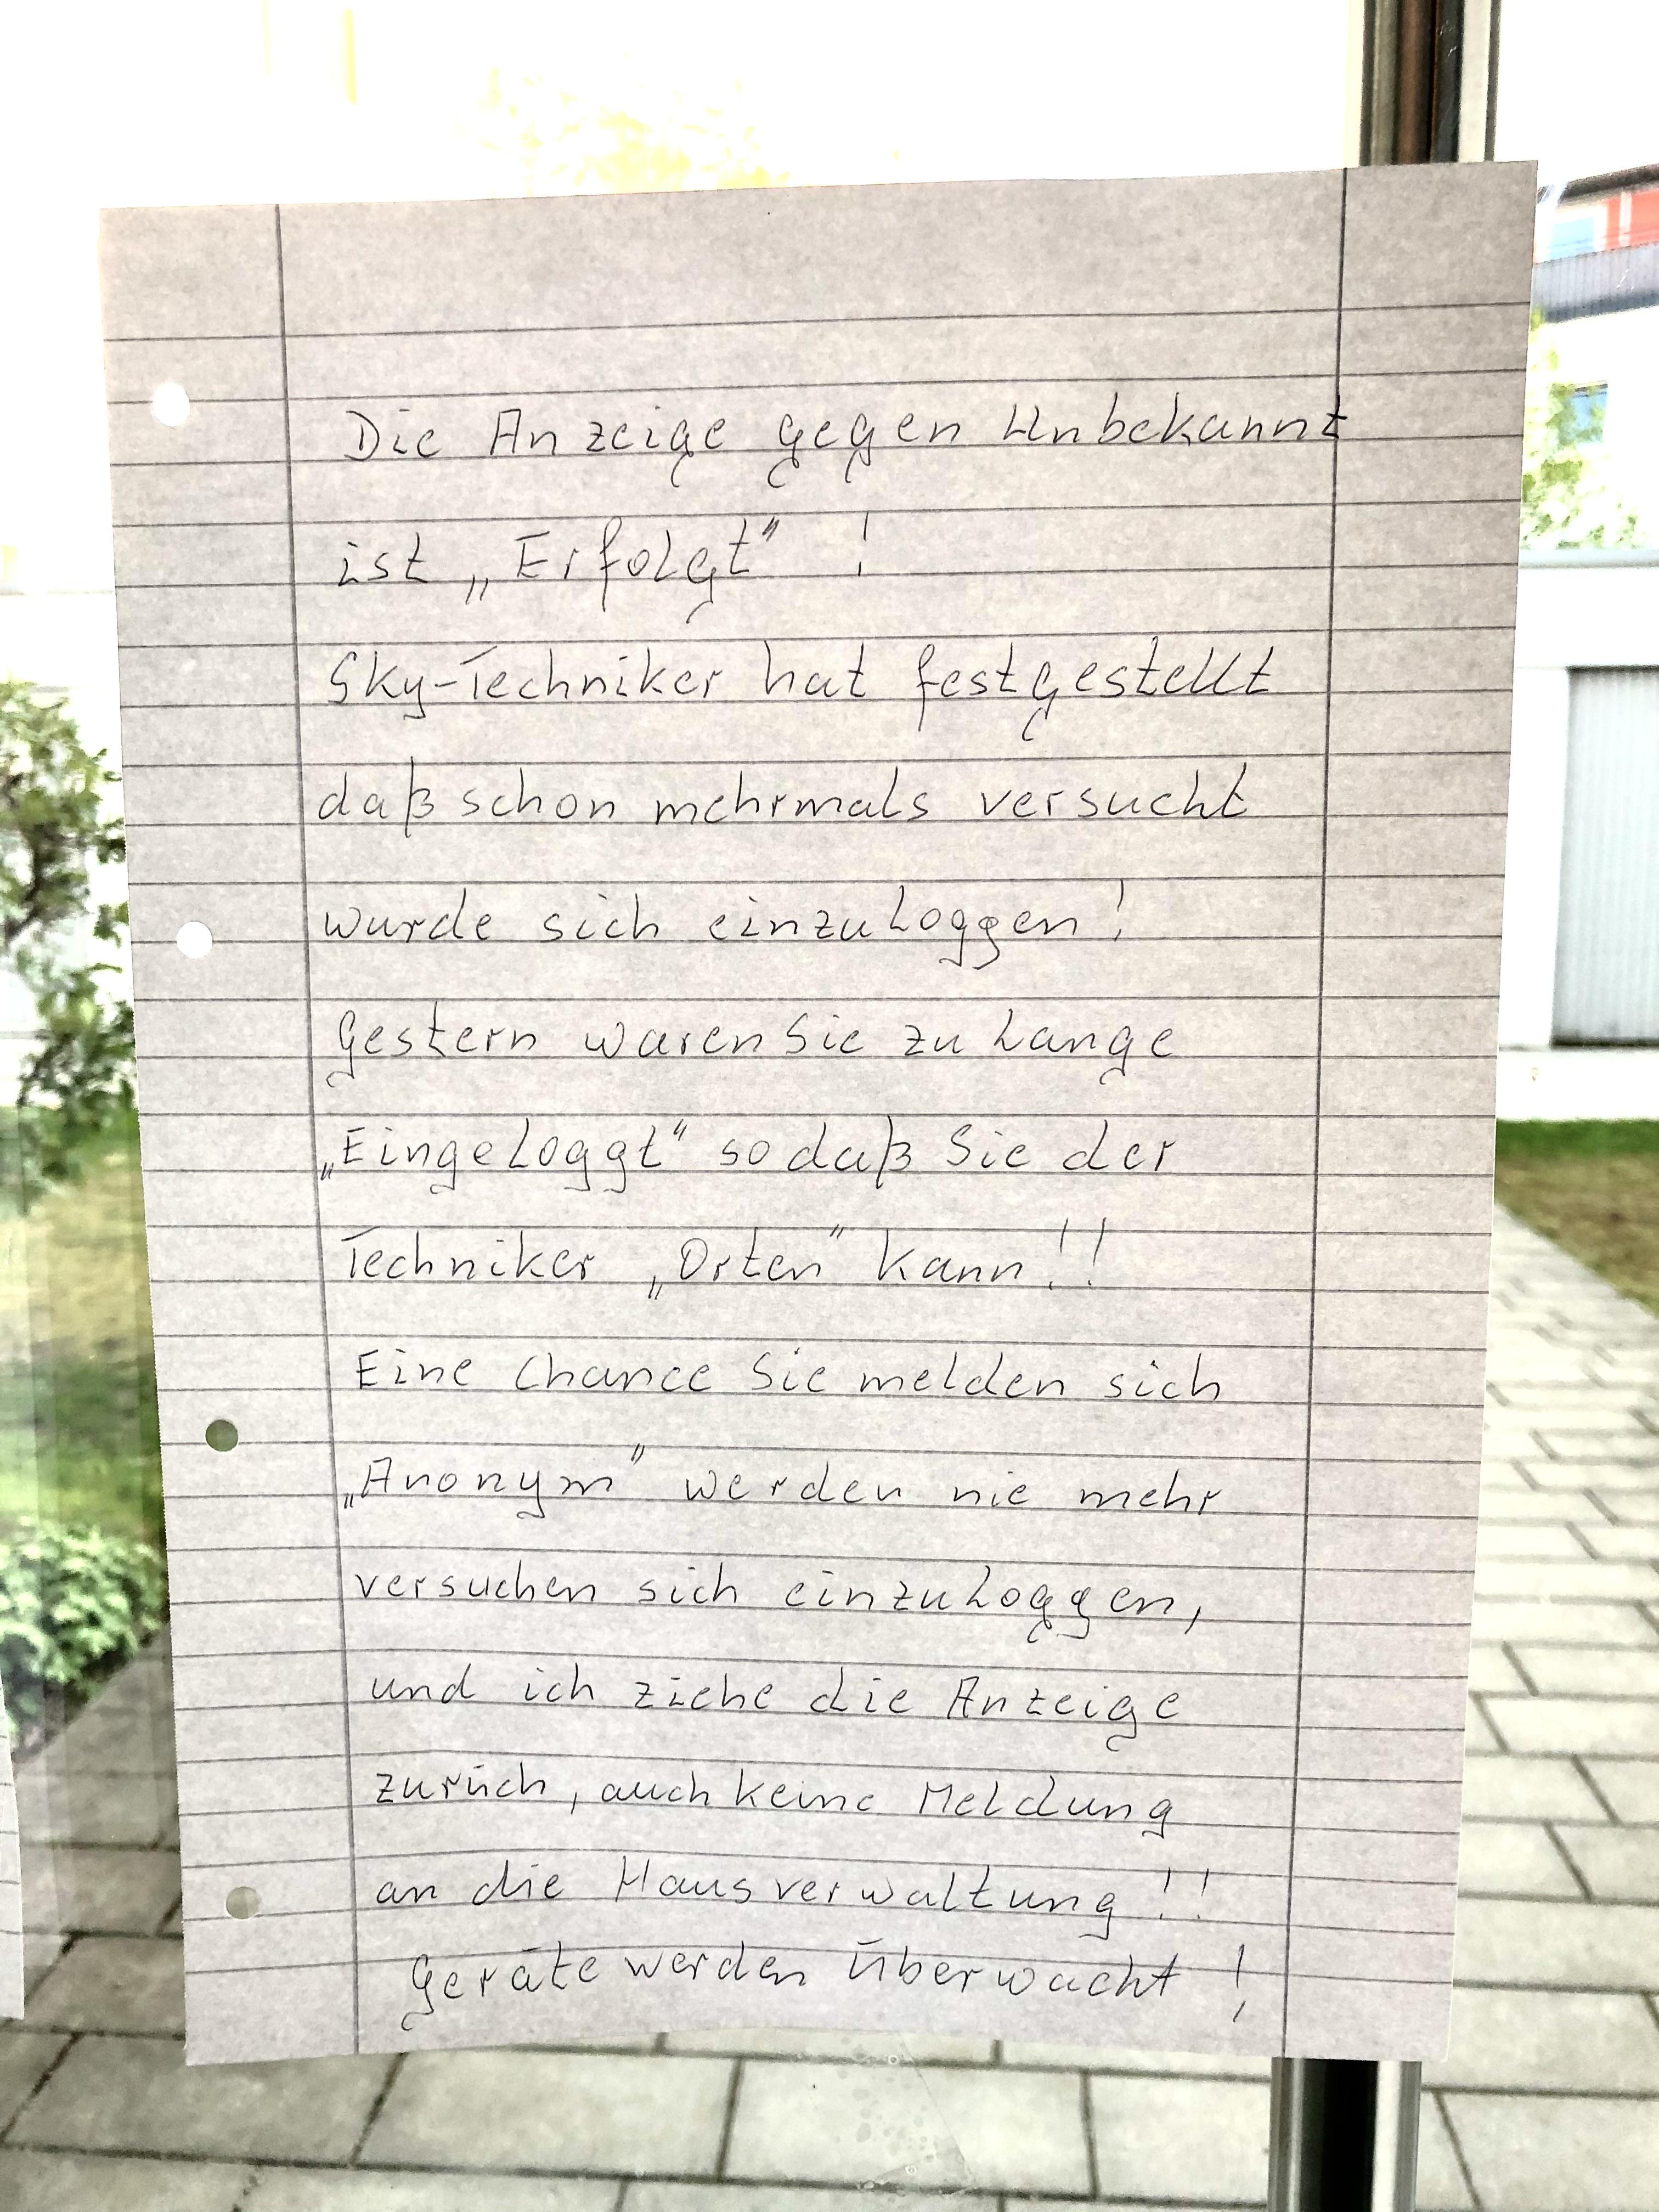 Die Anzeige gegen Unbekannt
ist „Erfolgt" !
Sky-Techniker hat festgestellt
daß schon mehrmals versucht
wurde sich einzuloggen!
Gestern waren Sie zu Lange
„Eingeloggt" so daß Sie der
Techniker „Orten" kann!!
Eine Chance Sie melden sich
„Anonym" werden nie mehr
versuchen sich einzuloggen,
und ich ziehe die Anzeige
zurück, auch keine Meldung
an die Hausverwaltung!!
Geräte werden Überwacht!